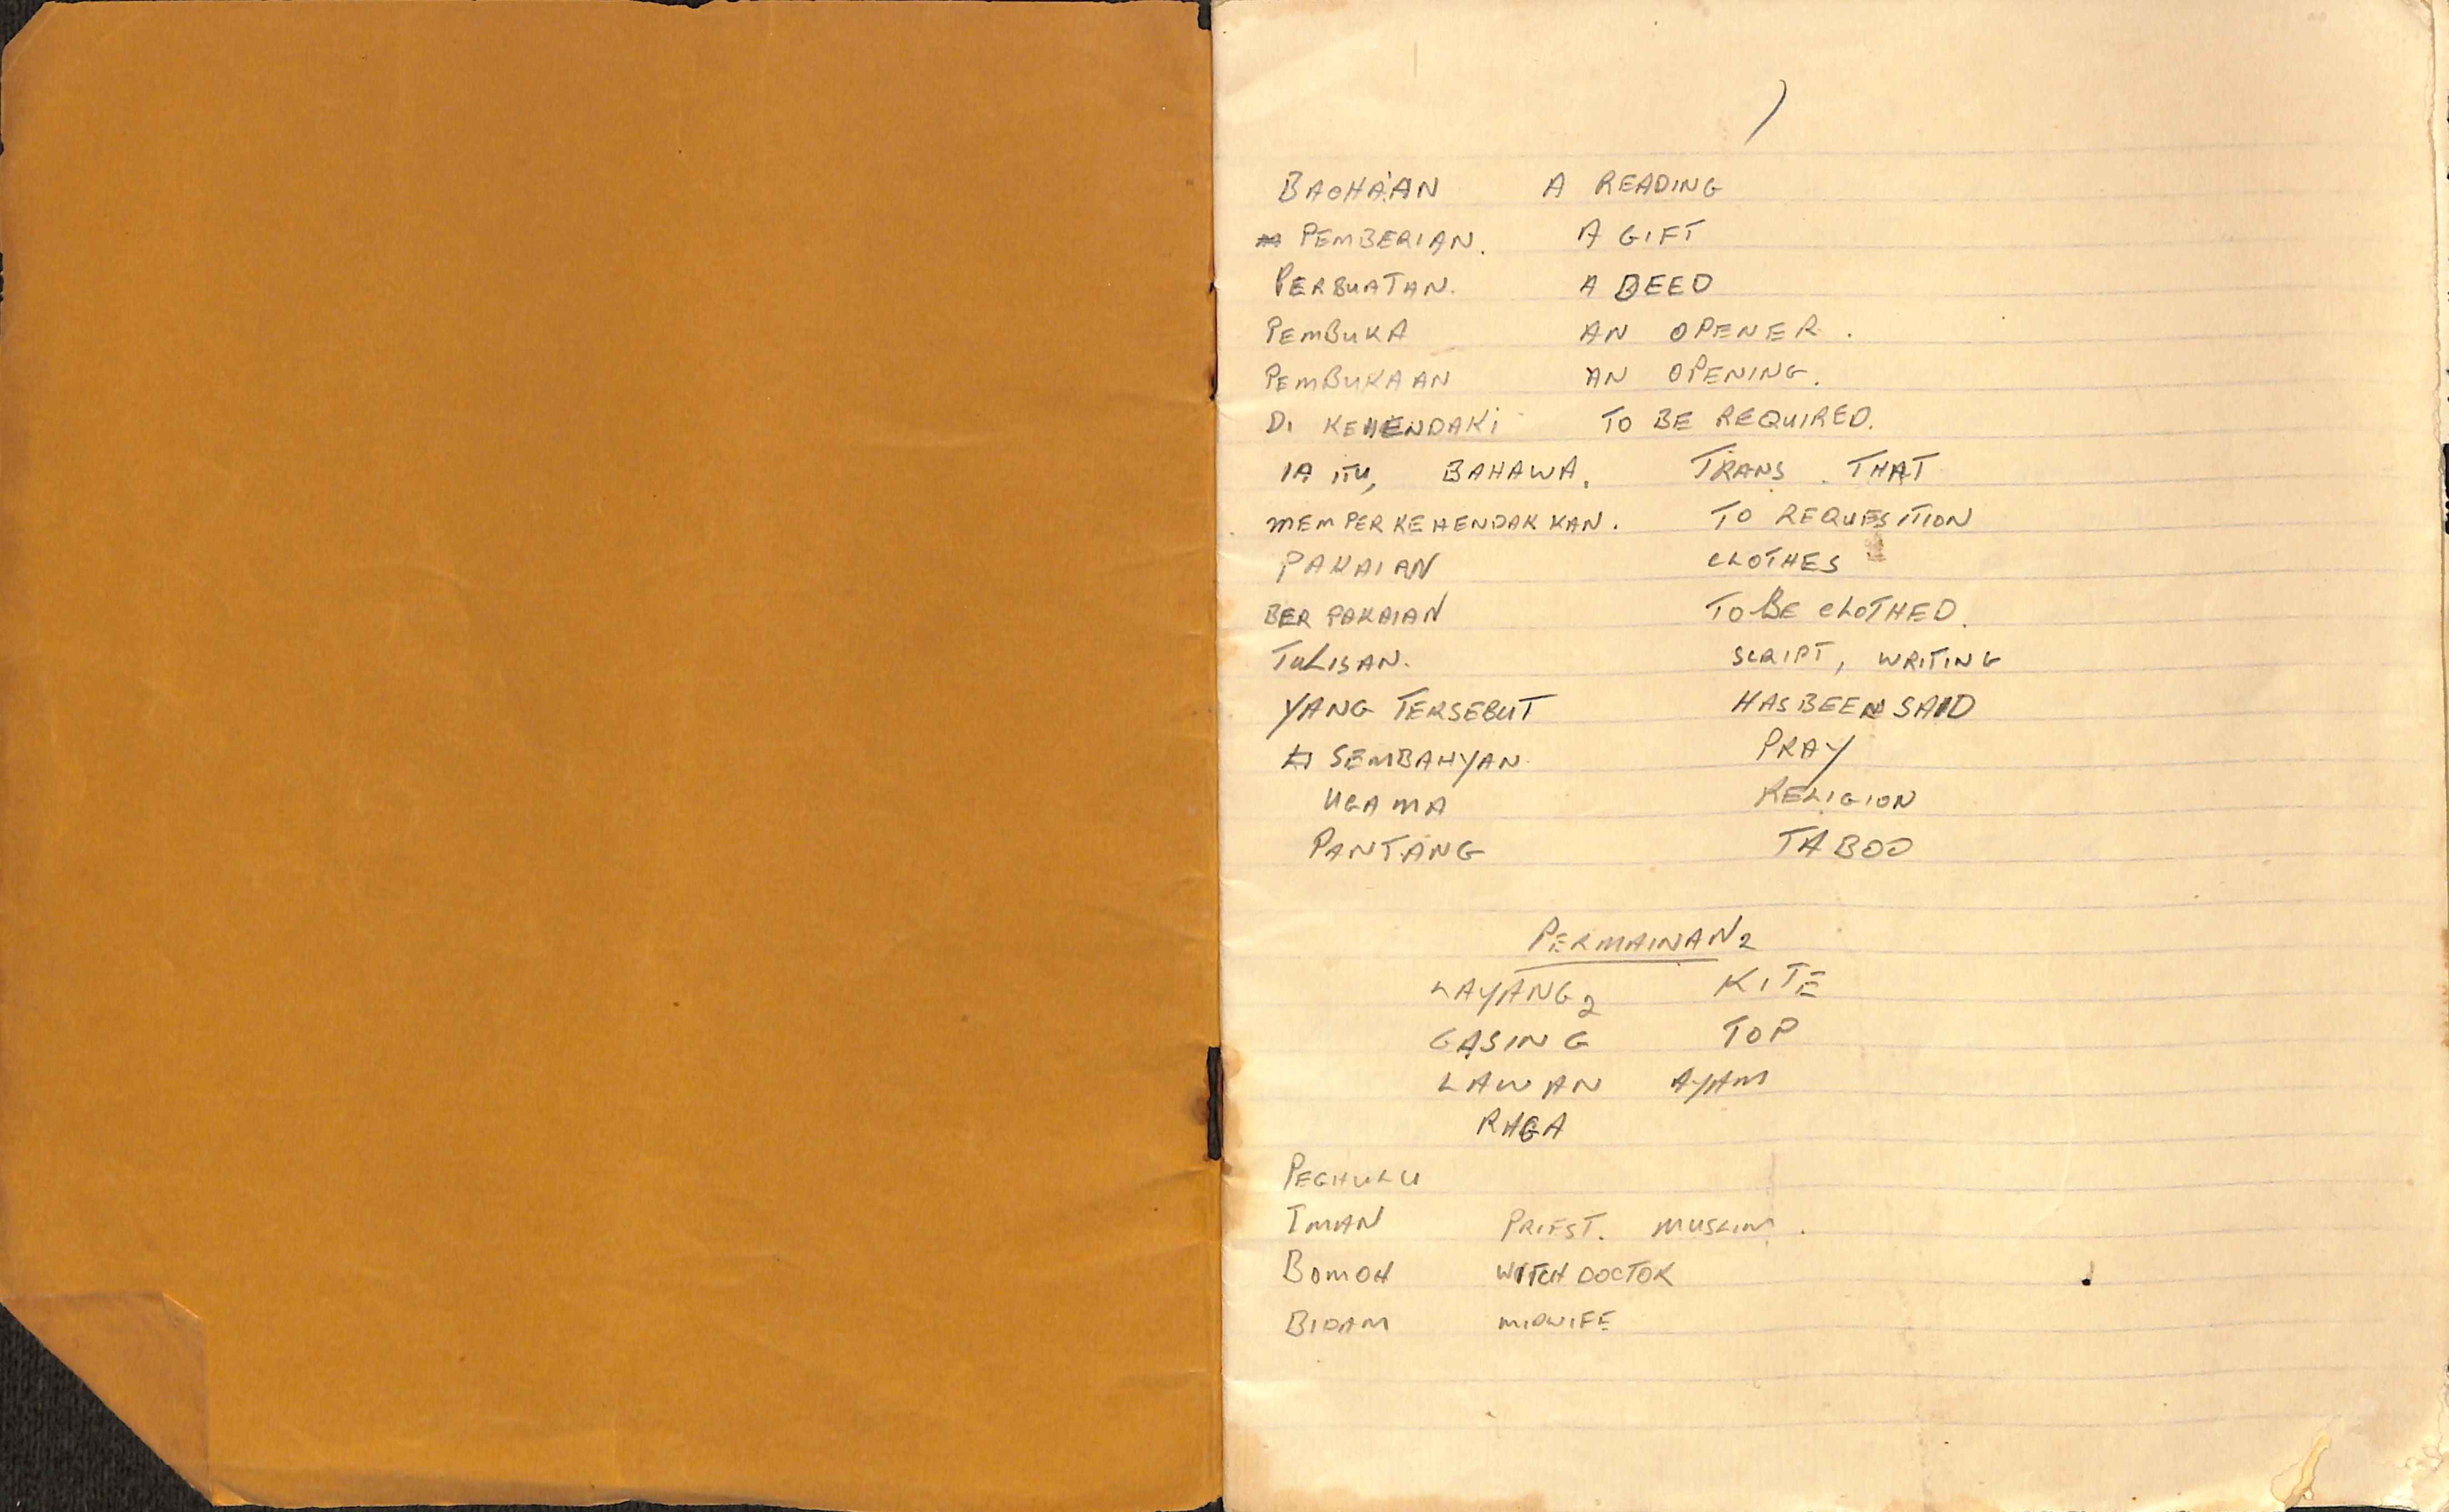 BACHA'AN A READING
PEMBERIAN. A GIFT
PERBUATAN. A DEED
PEMBUKA AN OPENER.
PEMBUKAAN AN OPENING.
DI KEHENDAKI TO BE REQUIRED.
IA ITU, BAHAWA. TRANS. THAT
MEMPERKEHENDAKKAN. TO REQUESITION
PAKAIAN CLOTHES
BER PAKAIAN TO BE CLOTHED.
TULISAN. SCRIPT, WRITING
YANG TERSEBUT HAS BEEN SAID
SEMBAHYAN PRAY
UGAMA RELIGION
PANTANG TABOO
PERMAINAN2
LAYANG2 KITE
GASING TOP
LAWAN AYAM
RAGA
PEGHULU
IMAN PRIEST. MUSLIM.
BOMOH WITCH DOCTOR
BIDAM MIDWIFE